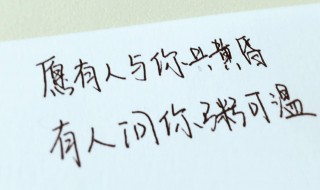 愿有人与你共黄昏
有人问你粥可温